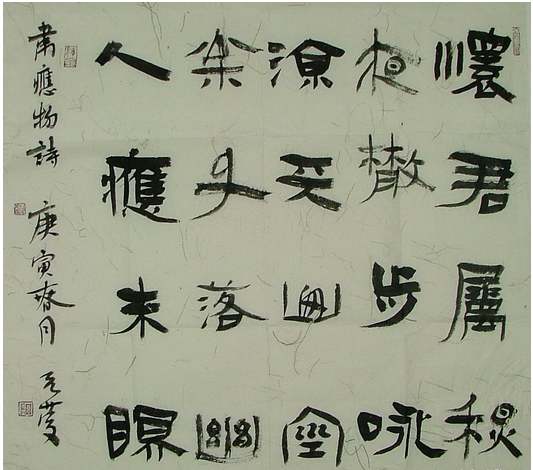 懷君屬秋
夜㪔步咏
涼天山空
枀子落幽
人應未眠
韋應物詩 庚寅春月